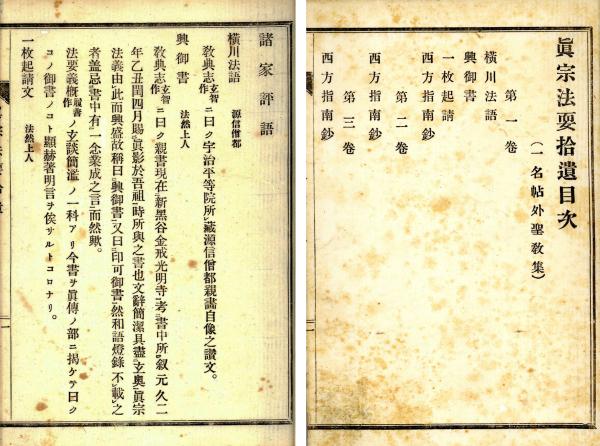 眞宗法要拾遺目次
(一名帖外聖敎集)
第一卷
橫川法語
興御書
一枚起請
西方指南鈔
第二卷
西方指南鈔
第三卷
西方指南鈔
諸家評語
橫川法語 源信僧都
敎典志玄智作ニ曰ク宇治平等院所藏源信僧都親畵自像之讚文。
興御書 法然上人
敎典志玄智作ニ曰ク親書現在新黑谷金戒光明寺考書中所叙元久二
年乙丑閏四月賜眞影於吾祖時所與之書也文辭簡潔具盡玄奧眞宗
法義由此而興盛故稱曰興御書又曰印可御書然和語燈錄不載之
者盖忌書中有一念業成之言而然歟。
法要義槪履書作ノ玄談簡濫ノ一科アリ今書ヲ眞傳ノ部ニ揭ケテ曰ク
コノ御書ノコト顯赫著明言ヲ俟サルトコロナリ。
一枚起請文 法然上人